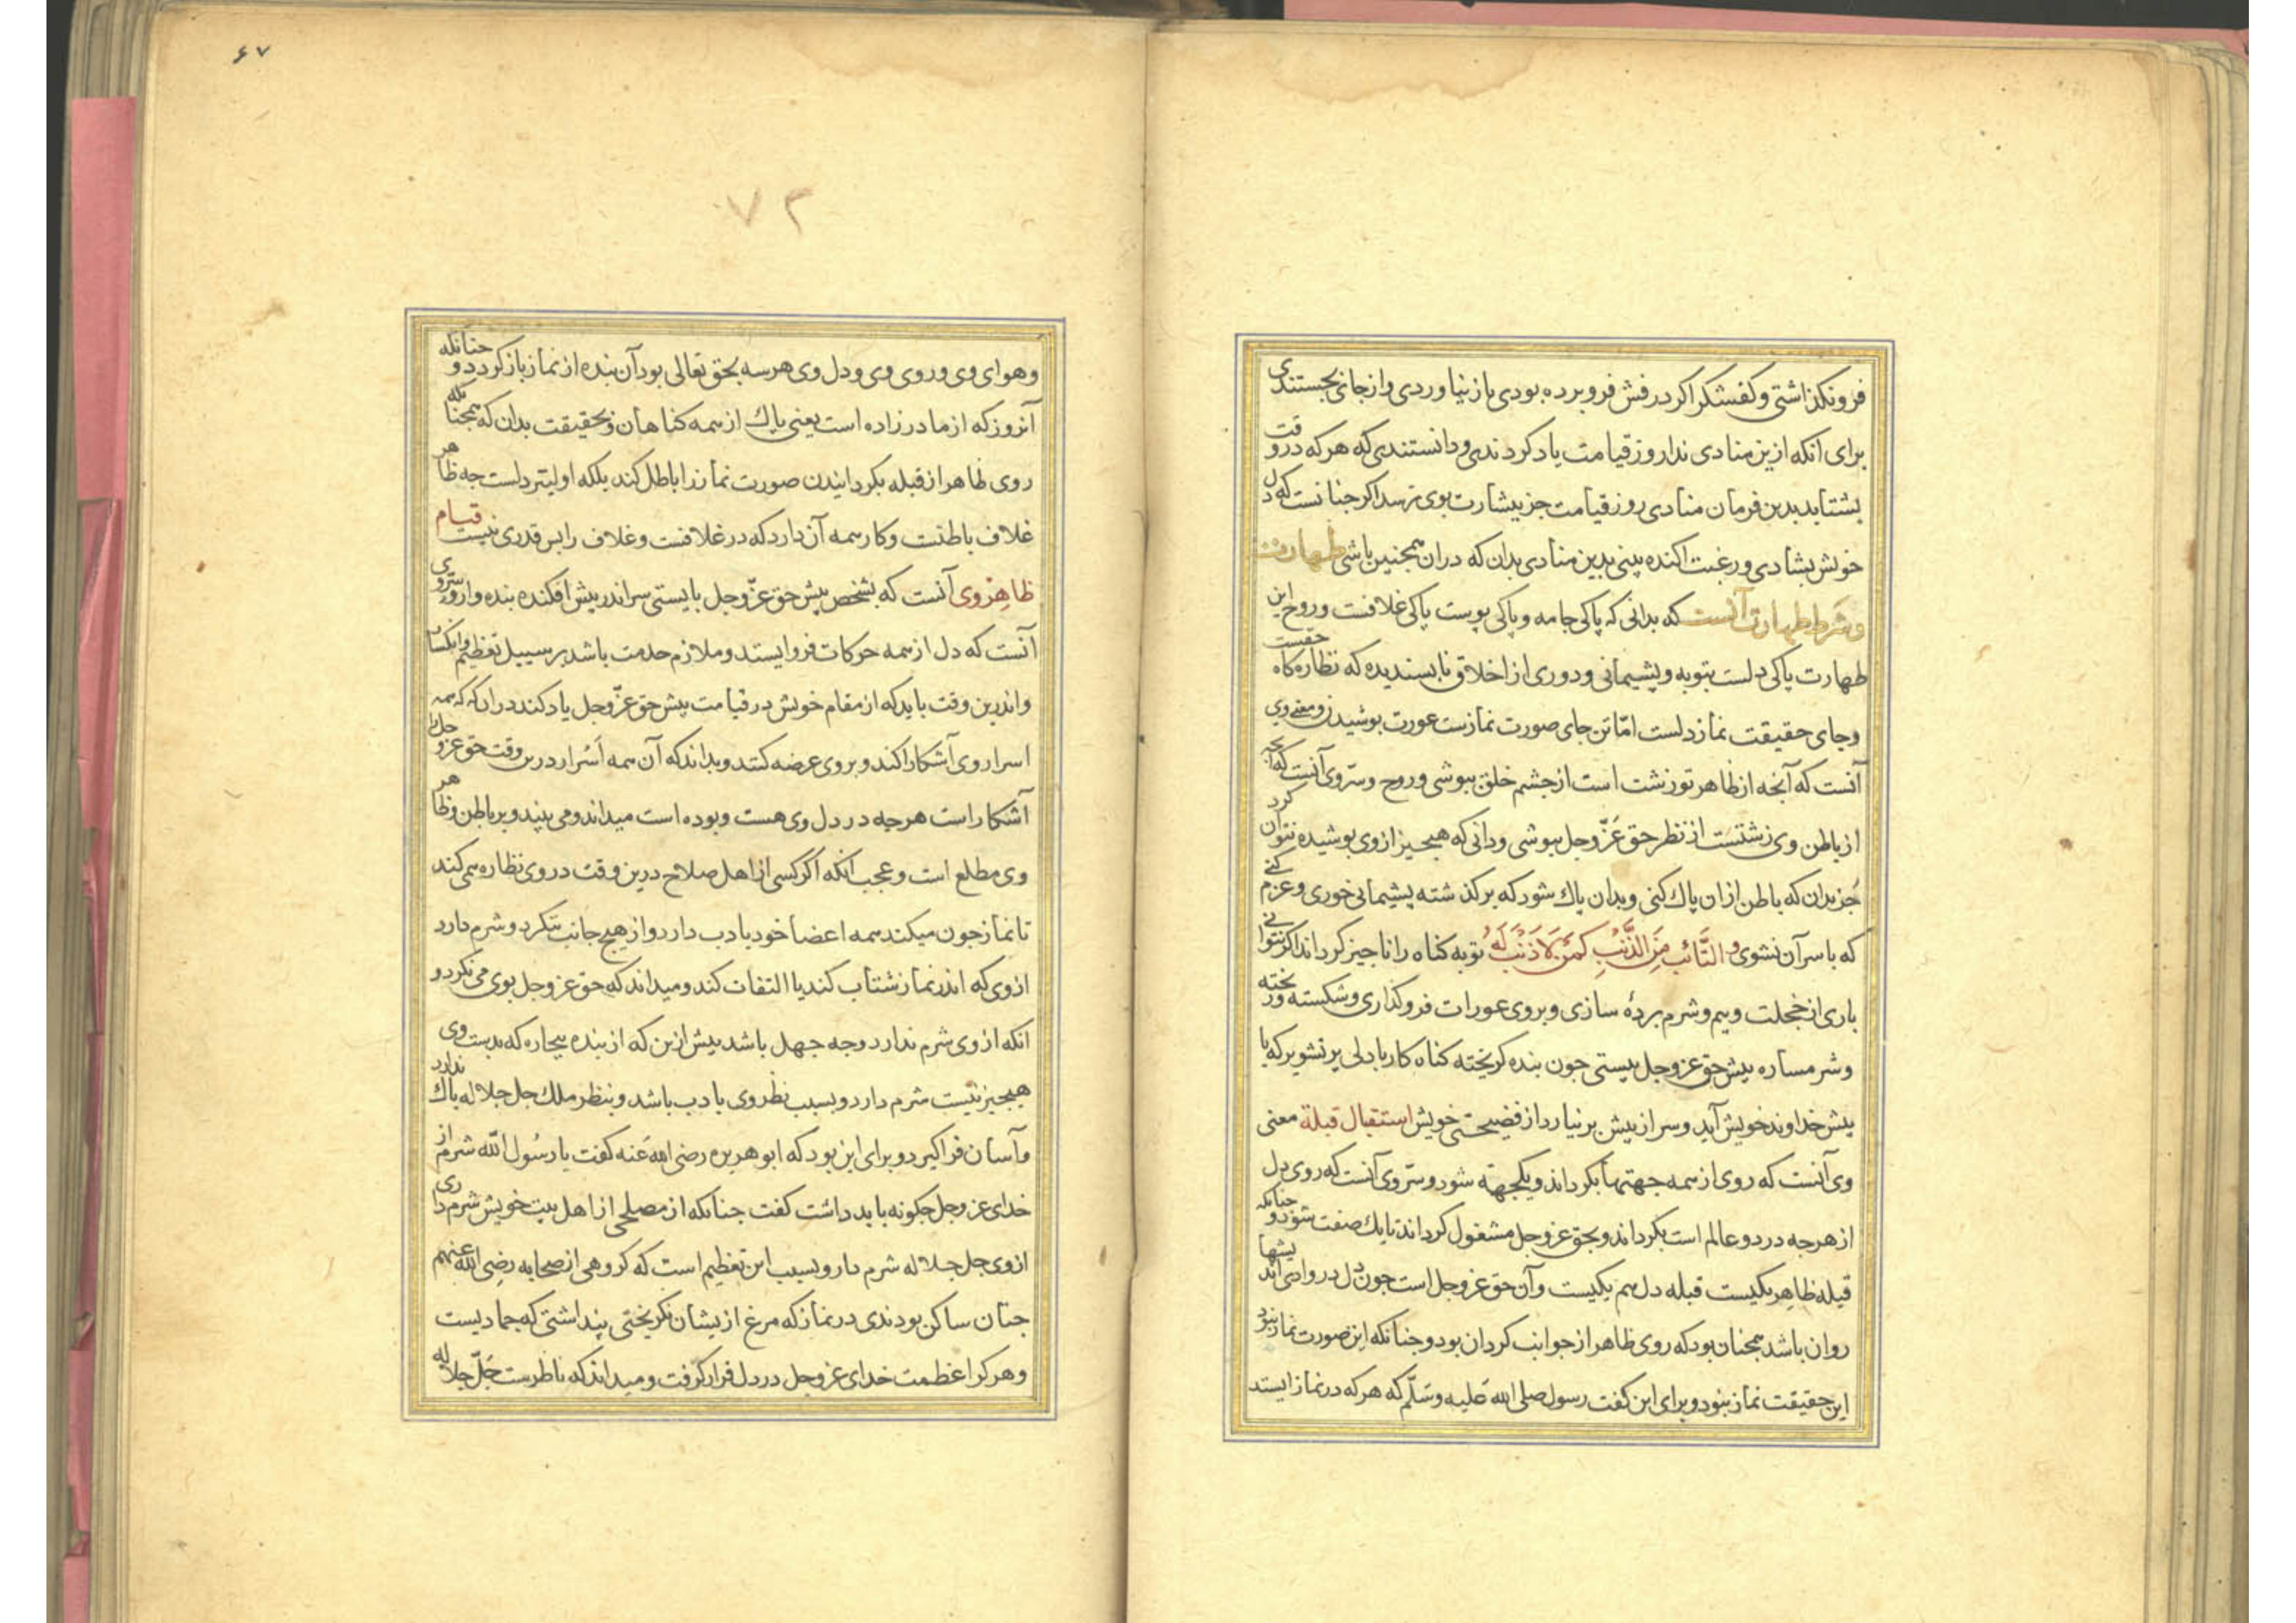 فرونکذاشتی و کفشکر اکر درفش فرو برده بودی باز نیاوردی و از جای بجستندی
برای انکه ازین منادی ندا روز قیامت یاد کردندی و دانستندی که هر که درو قت
بشتابد بدین فرمان منادی روز قیامت جز بشارت بوی نرسد اکر جنانست که دل
خویش بشادی و رغبت اکنده بینی بدین منادی بدان که دران همجنین باشی طهارت
و شرط طهارت آنست که بدانی که پاکی جامه و پاکی پوست پاکی غلافست و روح این
طهارت پاکی دلست بتوبه و پشیمانی و دوری از اخلاق نابسندیده که نظاره کاه حقست
و جای حقیقت نماز دلست امّا تن جای صورت نمازست عورت بوشیدن و معنی وی
آنست که آنجه از ظاهر تو زشت است از جشم خلق ببوشی و روح و سرّ وی آنست که آنجه
از باطن وی زشتست از نظر حق عَزّ و جل ببوشی و دانی که هیجیز از وی بوشیده نتوان کرد
جُز بدان که باطن ازان پاک کنی و بدان پاک شود که بر کذشته پشیمانی خوری و عزم کنی
که با سر آن نشوی و التَّائب مِنَ الذَّنْبِ کَمَنْ لاَ ذَنْبَ لَهُ توبه کناه را ناجیز کرداند اکر نتوانی
باری از خجلت و بیم و شرم بردهٔ سازی و بر وی عورات فروکذاری و شکسته و ریخته
و شرمساره بیش حق عز و جل بیستی جون بنده کریخته کناه کار با دلی بر تشویر که با
بیش خداوند خویش آید و سر از بیش بر نیارد از فضیحتی خویش استقبال قبلة معنی
وی آنست که روی از همه جهتها بکرداند و یکجهته شود و سرّ وی آنست که روی دل
از هرجه در دو عالم است بکرداند و بحق عز و جل مشغول کرداند تا یک صفت شود و جنانکه
قبله ظاهر یکیست قبله دل هم یکیست و آن حق عز و جل است جون دل در وادی اندیشها
روان باشد همجنان بود که روی ظاهر از جوانب کردان بود و جنانکه این صورت نماز نبود
این حقیقت نماز نبود و برای این کفت رسول صلی الله علیه و سَلّم که هر که در نماز ایستد
۶۷
۷۲
و هوای وی و روی وی و دل وی هر سه بحق تعالی بود آن بنده از نماز باز کردد و جنانکه
آنروز که از مادر زاده است یعنی پاک از همه کناهان و بحقیقت بدان که همجنانکه
روی ظاهر از قبله بکردانیدن صورت نماز را باطل کند بلکه اولیتر دلست جه ظاهر
غلاف باطنت و کار همه آن دارد که در غلافست و غلاف را بس قدری نیست قیام
ظاهر وی آنست که بشخص بیش حق عزّ و جل بایستی سر اندر بیش افکنده بنده وار و سرّ وی
آنست که دل از همه حرکات فرو ایستد و ملازم خدمت باشد بر سبیل تعظیم و انکسار
و اندرین وقت باید که از مقام خویش در قیامت بیش حق عزّ و جل یاد کند دران که که همه
اسرار وی آشکارا کند و بر وی عرضه کنند و بداند که آن همه اَسْرار درین وقت حق عز و جل را
آشکار است هرجه در دل وی هست و بوده است میداند و می بیند و بر باطن و ظاهر
وی مطلع است و عجب انکه اکر کسی از اهل صلاح درین وقت در وی نظاره همی کند
تا نماز جون میکند همه اعضا خود با دب دارد و از هیج جانب ننکرد و شرم دارد
از وی که اندر نماز شتاب کند یا التفات کند و میداند که حق عز و جل بوی می نکرد و
انکه از وی شرم ندارد و جه جهل باشد بیش ازین که از بنده بیجاره که بدست وی
هیجیز نیست شرم دارد و بسبب نظر وی با دب باشد و بنظر ملک جل جلاله باک ندارد
و آسان فراکیرد و برای این بود که ابو هریره رضی الله عَنه کفت یا رسُول الله شرم از
خدای عز و جل جکونه باید داشت کفت جنانکه از مصلحی از اهل بیت خویش شرم داری
از وی جل جلاله شرم دار و بسبب این تعظیم است که کروهی از صحابه رضی الله عنهم
جنان ساکن بودندی در نماز که مرغ ازیشان نکریختی پنداشتی که جمادیست
و هر کرا عظمت خدای عز و جل در دل قرار کرفت و میداند که ناظرست جَلّ جلاله